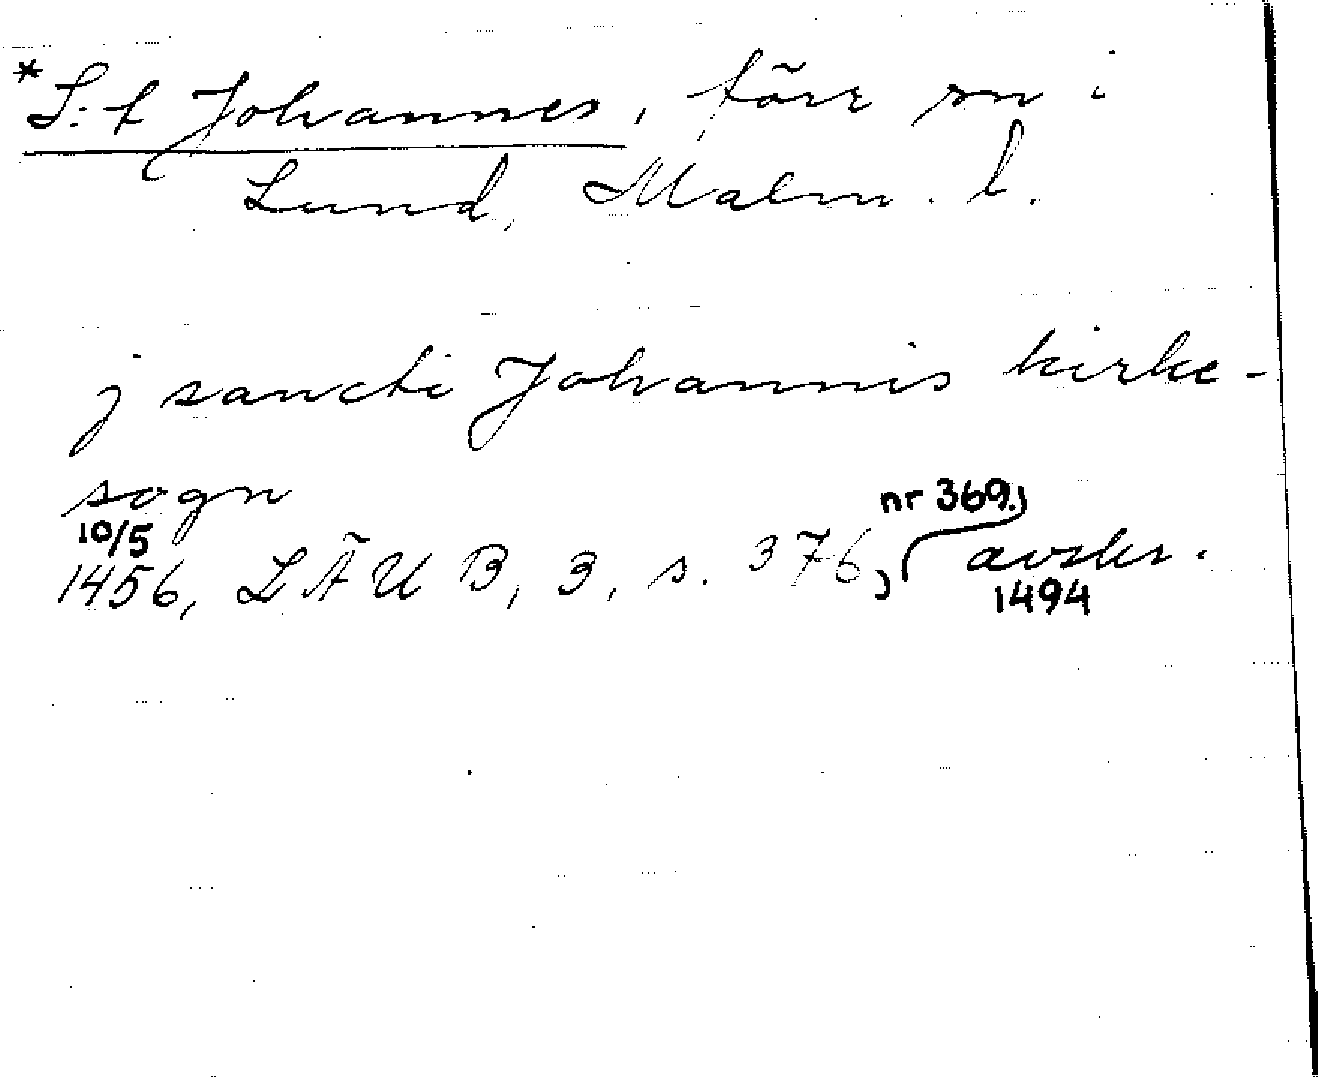 *S:t Johannes, förr sn i
Lund, Malm. l.
j sancti Johannis kirke-
sogn
10/5 nr 369.,
1456, LÄUB, 3, s. 376, avskr.
1494